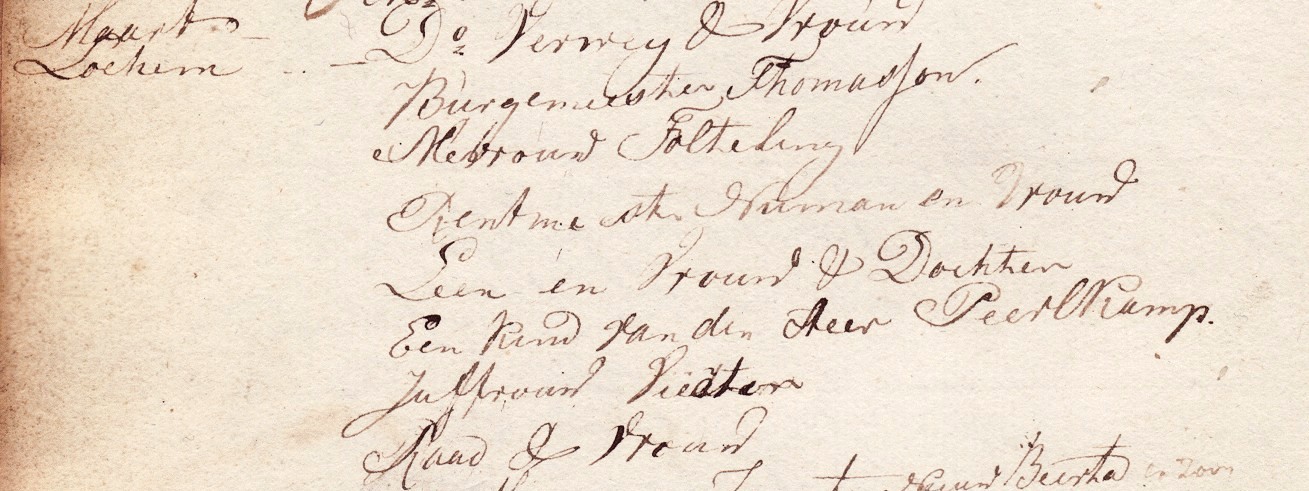 Maart
Lochem - - - Do Verwey & Vrouw
Burgemeester Thomasson.
Mevrouw Folteling
Rentmeestr Numan en Vrouw
Leen en Vrouw & Dochter
Een Kind van den Heer Peerlkamp.
Juffrouw
Raad & Vrouw
Beerta en zoon